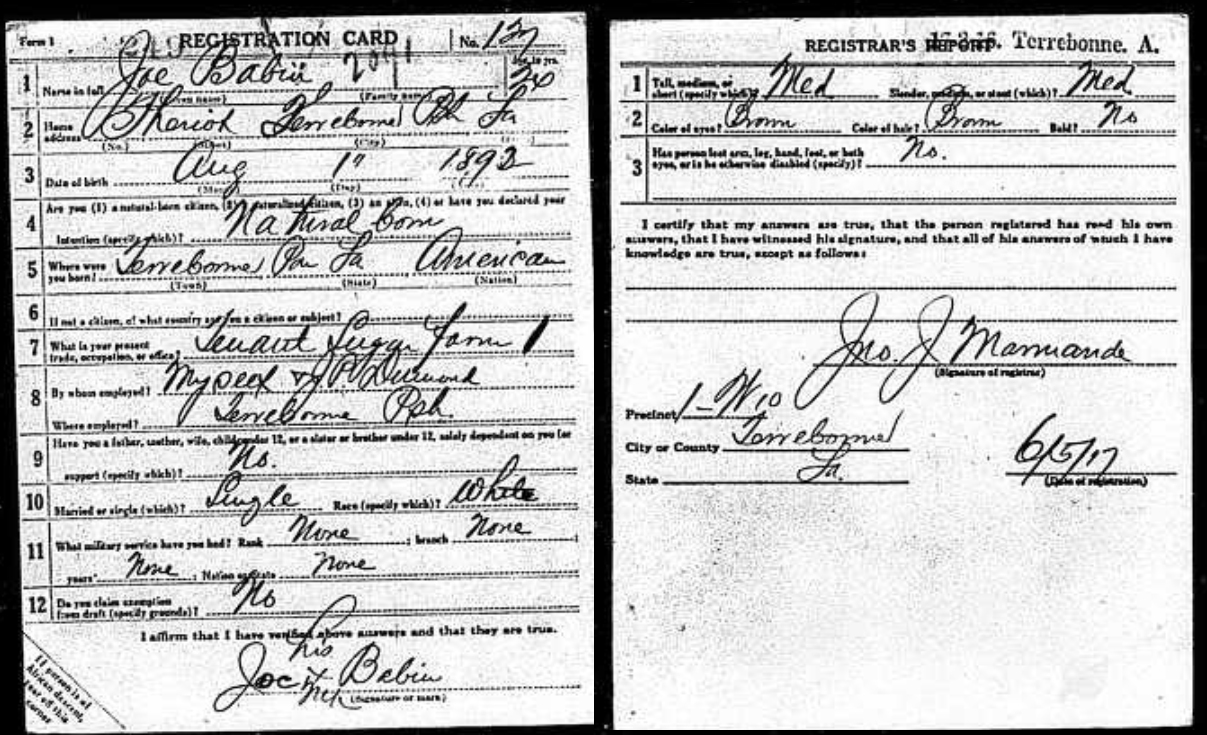 Form 1 REGISTRATION CARD No.
Age, in yrs.
1 Name in full Joe Babin
(Given name) (Family name)
2 Home address Theriot Terrebonne Psh La
(No.) (Street) (City) (State)
3 Date of birth Aug 1" 1893
(Month) (Day) (Year)
4 Are you (1) a natural-born citizen, (2) a naturalized citizen, (3) an alien, (4) or have you declared your
intention (specify which)? Natural born
5 Where were you born? Terrebonne Par La American
(Town) (State) (Nation)
6 If not a citizen, of what country are you a citizen or subject?
7 What is your present trade, occupation, or office? Tenant Sugar Farm
8 By whom employed? Myself & J P
Where employed? Terrebonne Psh.
9 Have you a father, mother, wife, child under 12, or a sister or brother under 12, solely dependent on you for
support (specify which)? No.
10 Married or single (which)? Single Race (specify which)? White
11 What military service have you had? Rank None ; branch None ;
years None ; Nation or State None
12 Do you claim exemption from draft (specify grounds)? No
I affirm that I have verified above answers and that they are true.
his
Joe x Babin
(Signature or mark)
If person is of
African descent,
tear off this
corner
REGISTRAR'S REPORT Terrebonne. A.
1 Tall, medium, or short (specify which)? Med Slender, medium, or stout (which)? Med
2 Color of eyes? Brown Color of hair? Brown Bald? No
3 Has person lost arm, leg, hand, foot, or both
eyes, or is he otherwise disabled (specify)? No.
I certify that my answers are true, that the person registered has read his own
answers, that I have witnessed his signature, and that all of his answers of which I have
knowledge are true, except as follows:
Jno. J Marmande
(Signature of registrar)
Precinct 1-W10
City or County Terrebonne
State La.
6/5/17
(Date of registration)